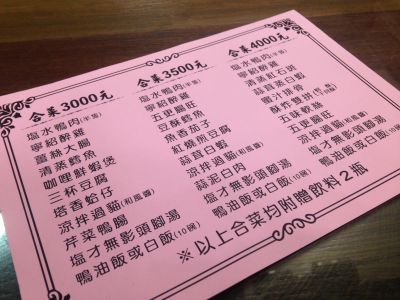 合菜3000元
塩水鴨肉(半隻)
寧紹醉雞
薑絲大腸
清蒸鱈魚
咖哩鮮蝦煲
三杯豆腐
塔香蛤仔
涼拌過貓(和風醬)
芹菜鴨腸
塩才無影頭腳湯
鴨油飯或白飯(10碗)
合菜3500元
塩水鴨肉(半隻)
寧紹醉雞
五更腸旺
豆酥鱈魚
魚香茄子
紅燒煎豆腐
蒜苔白蝦
涼拌過貓(和風醬)
蒜泥白肉
塩才無影頭腳湯
鴨油飯或白飯(10碗)
合菜4000元
塩水鴨肉(半隻)
寧紹醉雞
清蒸紅石斑
蒜茸蒸白蝦
蜜汁排骨
酥炸雙拼
五味軟絲
五更腸旺
涼拌過貓(和風醬)
塩才無影頭腳湯
鴨油飯或白飯(10碗)
※以上合菜均附贈飲料2瓶